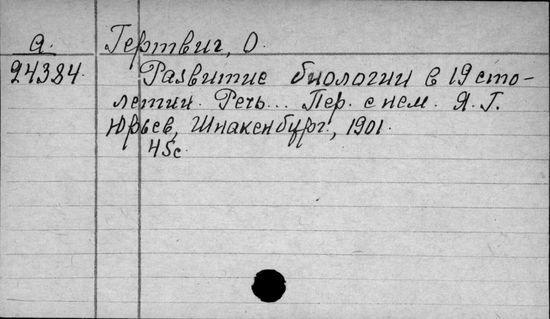 а. Гертвиг, О.
94384. Развитие биологии в 19 сто-
летии. Речь... Пер. с нем. Я. Г.
Юрьев, Шнакенбург, 1901.
45с.